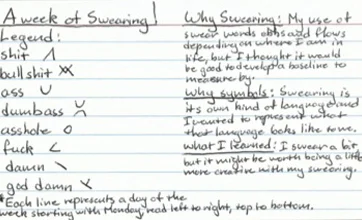 A week of Swearing!
Legend:
shit
bullshit
ass
dumbass
asshole
fuck
damn
god damn
*Each line represents a day of the
week starting with Monday, read left to right, top to bottom.
Why Swearing: My use of
swear words ebbs and flows
depending on where I am in
life, but I thought it would
be good to develop a baseline to
measure by.
Why symbols: Swearing is
its own kind of language and
I wanted to represent what
that language looks like to me.
What I learned: I swear a bit,
but it might be worth being a little
more creative with my swearing.